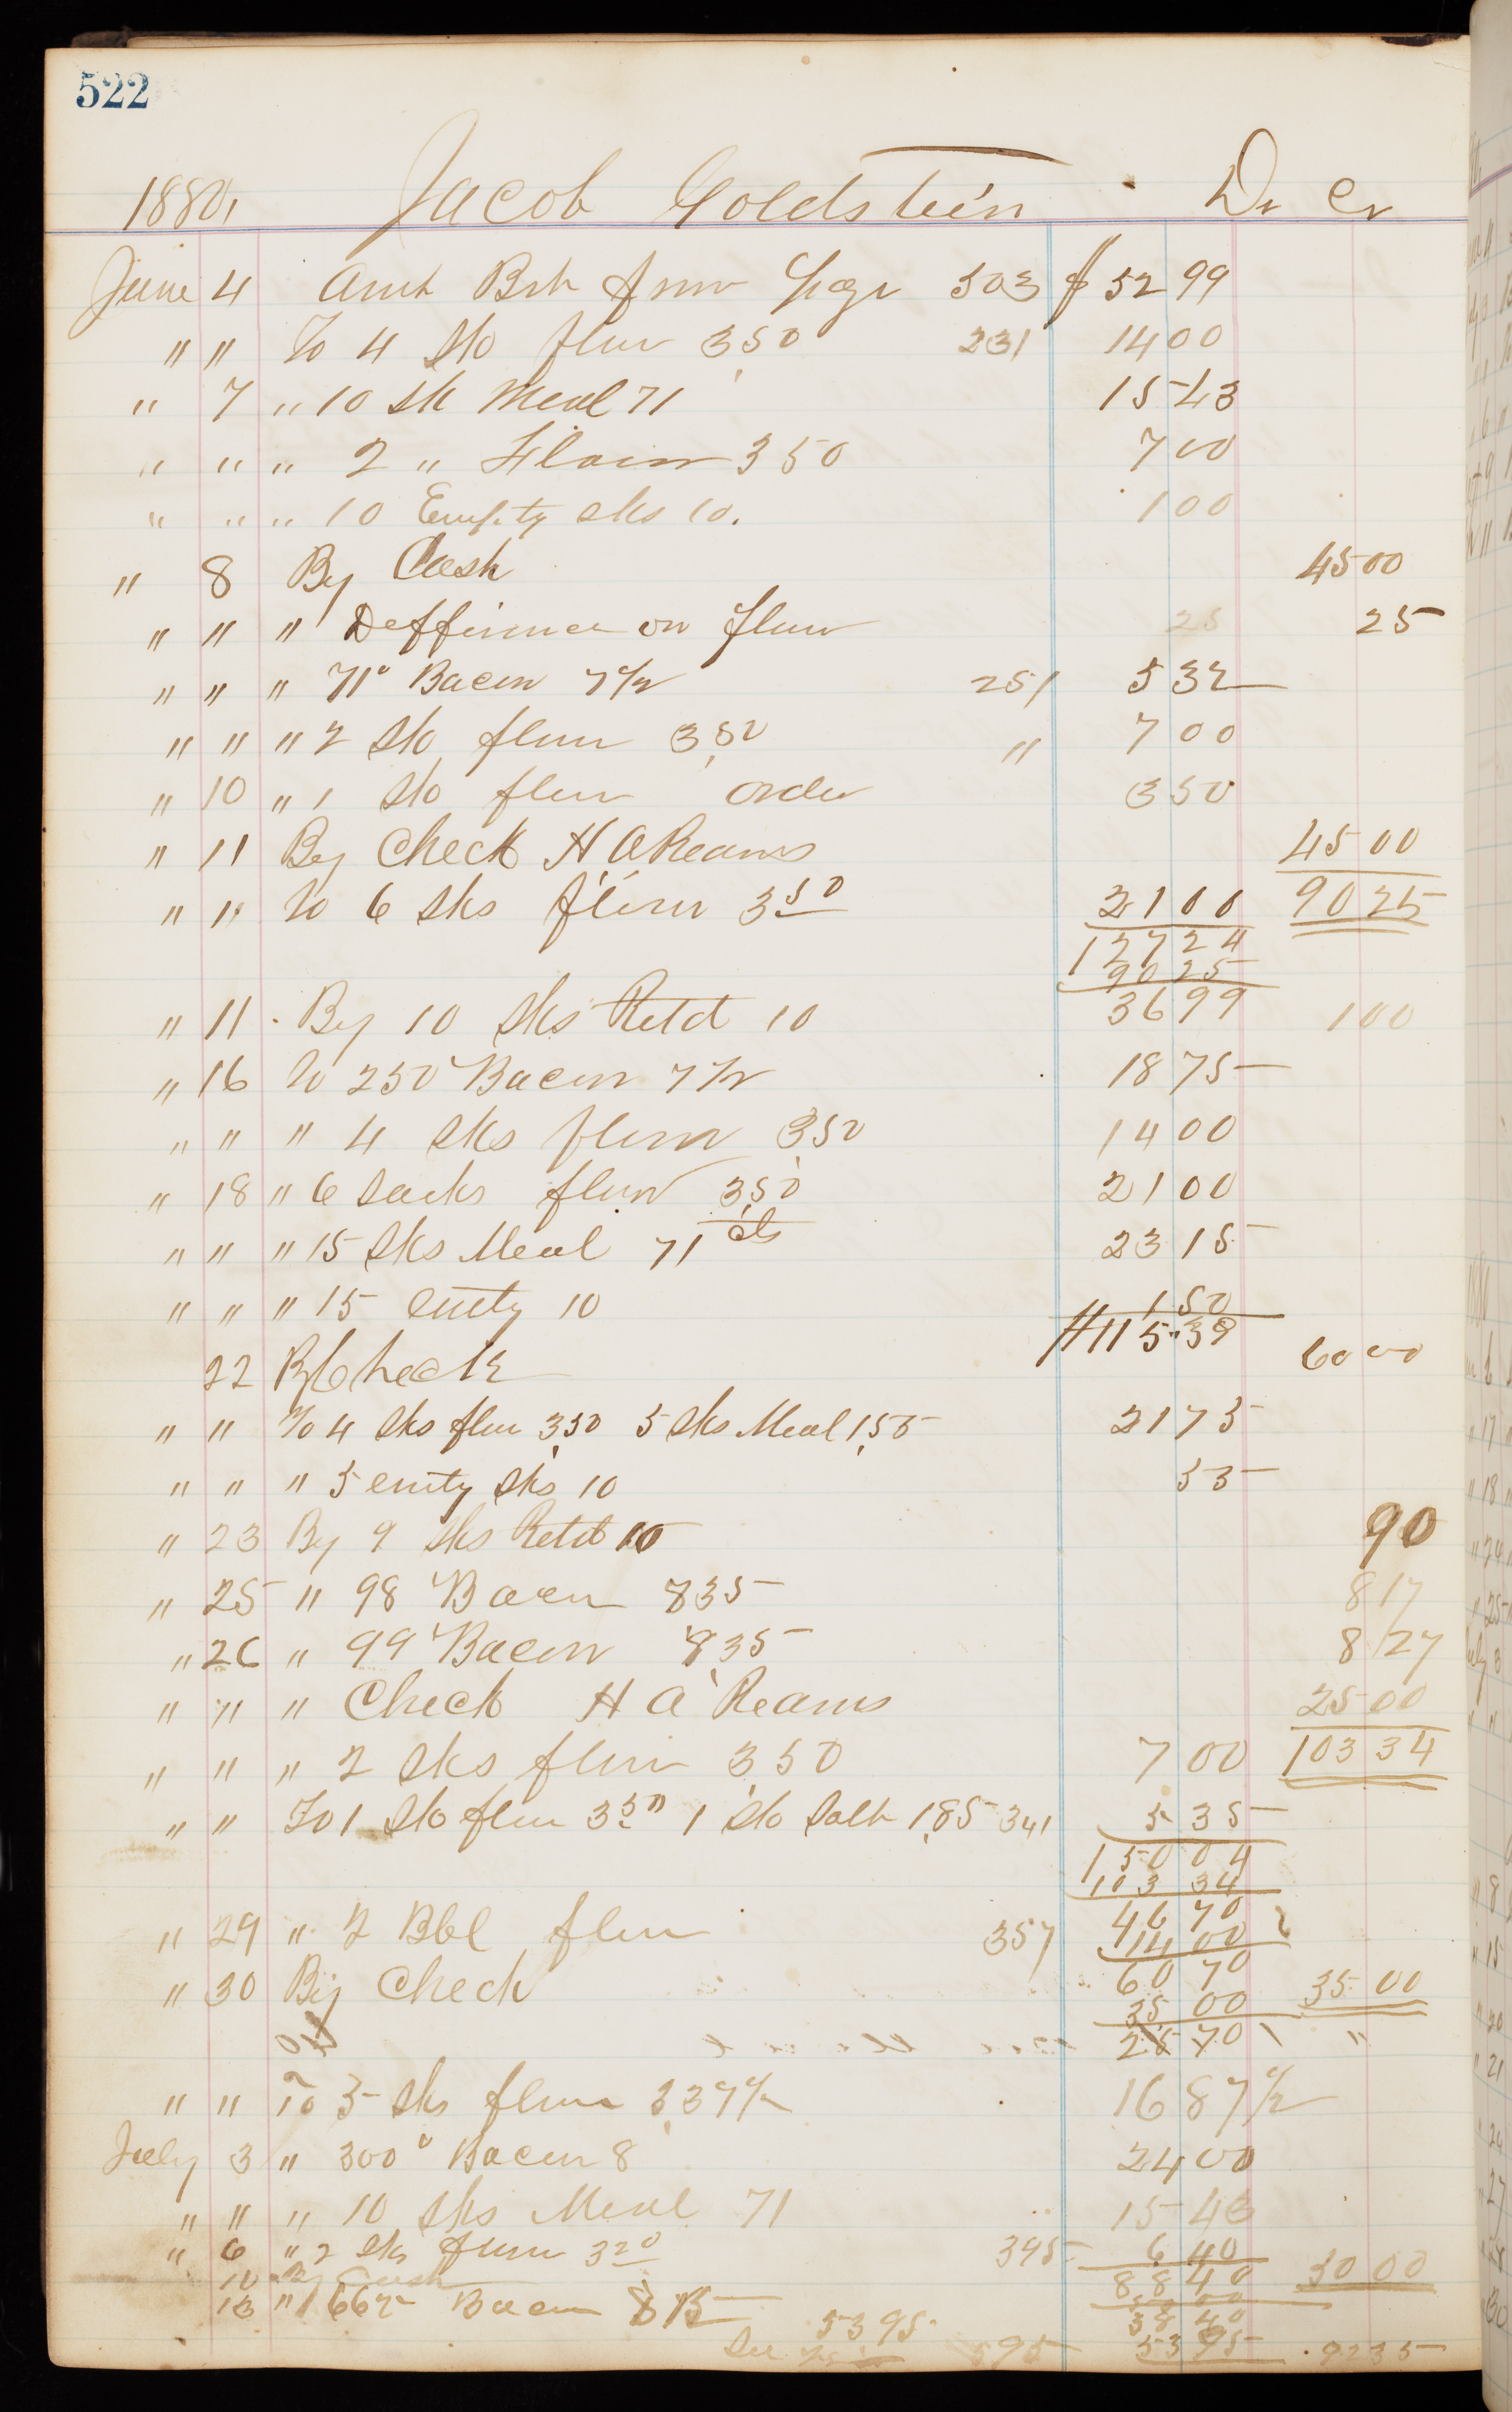 522
1880, Jacob Goldstein Dr Cr
June 4 Amt Brt from Page 503 $ 52 99
" " To 4 Sks flour 3,50 231 14 00
" 7 " 10 Sk Meal 71 15 43
" " " 2 " Flour 3 50 7 00
" " " 10 Empty Sks 10. 1 00
" 8 By Cash 45 00
" " " Defference on flour 25 25
" " " 71 Bacon 7 1/2 251 5 32
" " " 2 Sks flour 3,50 " 7 00
" 10 " 1 Sk flour order 3 50
" 11 By Check H A Reams 45 00
" 11 To 6 Sks flour 3 50 21 00 90 25
127 24
90 25
36 99
" 11 By 10 Sks Retd 10 1 00
" 16 To 250 Bacon 7 1/2 18 75
" " " 4 Sks flour 3,50 14 00
" 18 " 6 Sacks flour 3,50 21 00
" " " 15 Sks Meal 71 cts 23 15
" " " 15 emty 10 1 50
115.39
22 By Check 60 00
" " To 4 Sks flour 3,50 5 Sks Meal 1,55 21 75
" " " 5 emty Sks 10 55
" 23 By 9 Sks Retd 10 90
" 25 " 98 Bacon 835 8 17
" 26 " 99 Bacon 8,35 8 27
" " " Check H A Reams 25 00
" " " 2 Sks flour 3,50 7 00 103 34
" " To 1 Sk flour 3 50 1 Sk Salt 1,85 341 5 35
150 04
103 34
46 70
" 29 " 2 Bbl flour 357 14 00
60 70
" 30 By Check 35 00 35 00
25 70 "
" " To 5 Sks flour 3,37 1/2 16 87 1/2
July 3 " 300 Bacon 8 24 00
" " " 10 Sks Meal 71 15 43
" 6 " 2 Sks flour 3 20 395 6 40
10 By Cash 88 40 50 00
13 " 662 Bacon 8 15 38 40
See 53 95 595 53 95 92 35